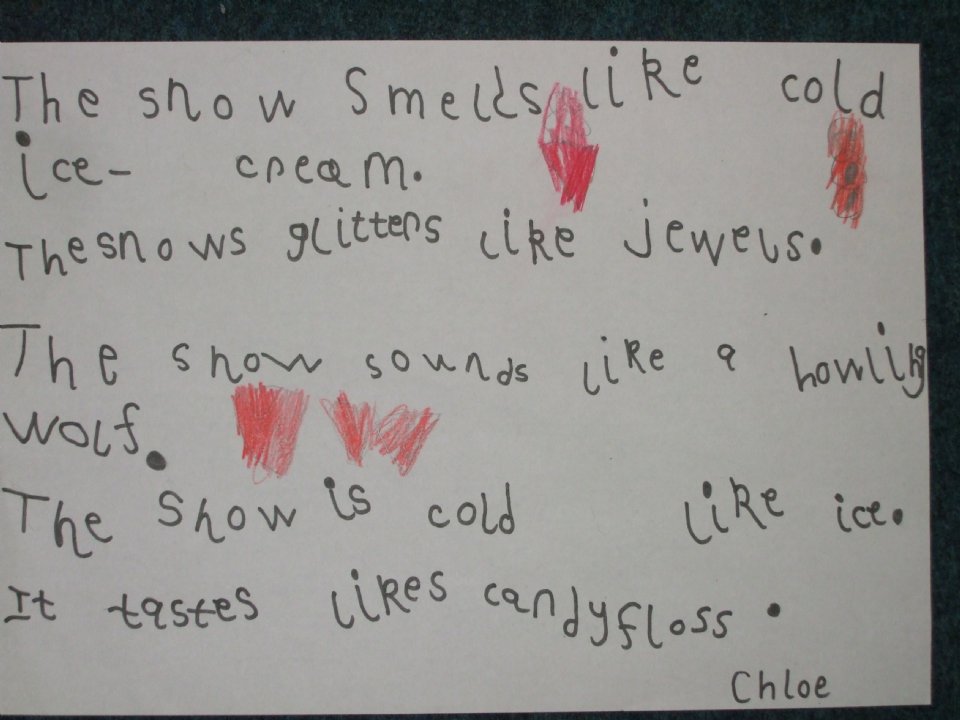 The snow Smells like cold
ice- cream.
The snows glitters like jewels.
The snow sounds like a howling
wolf.
The Snow is cold like ice.
It tastes likes candyfloss.
Chloe